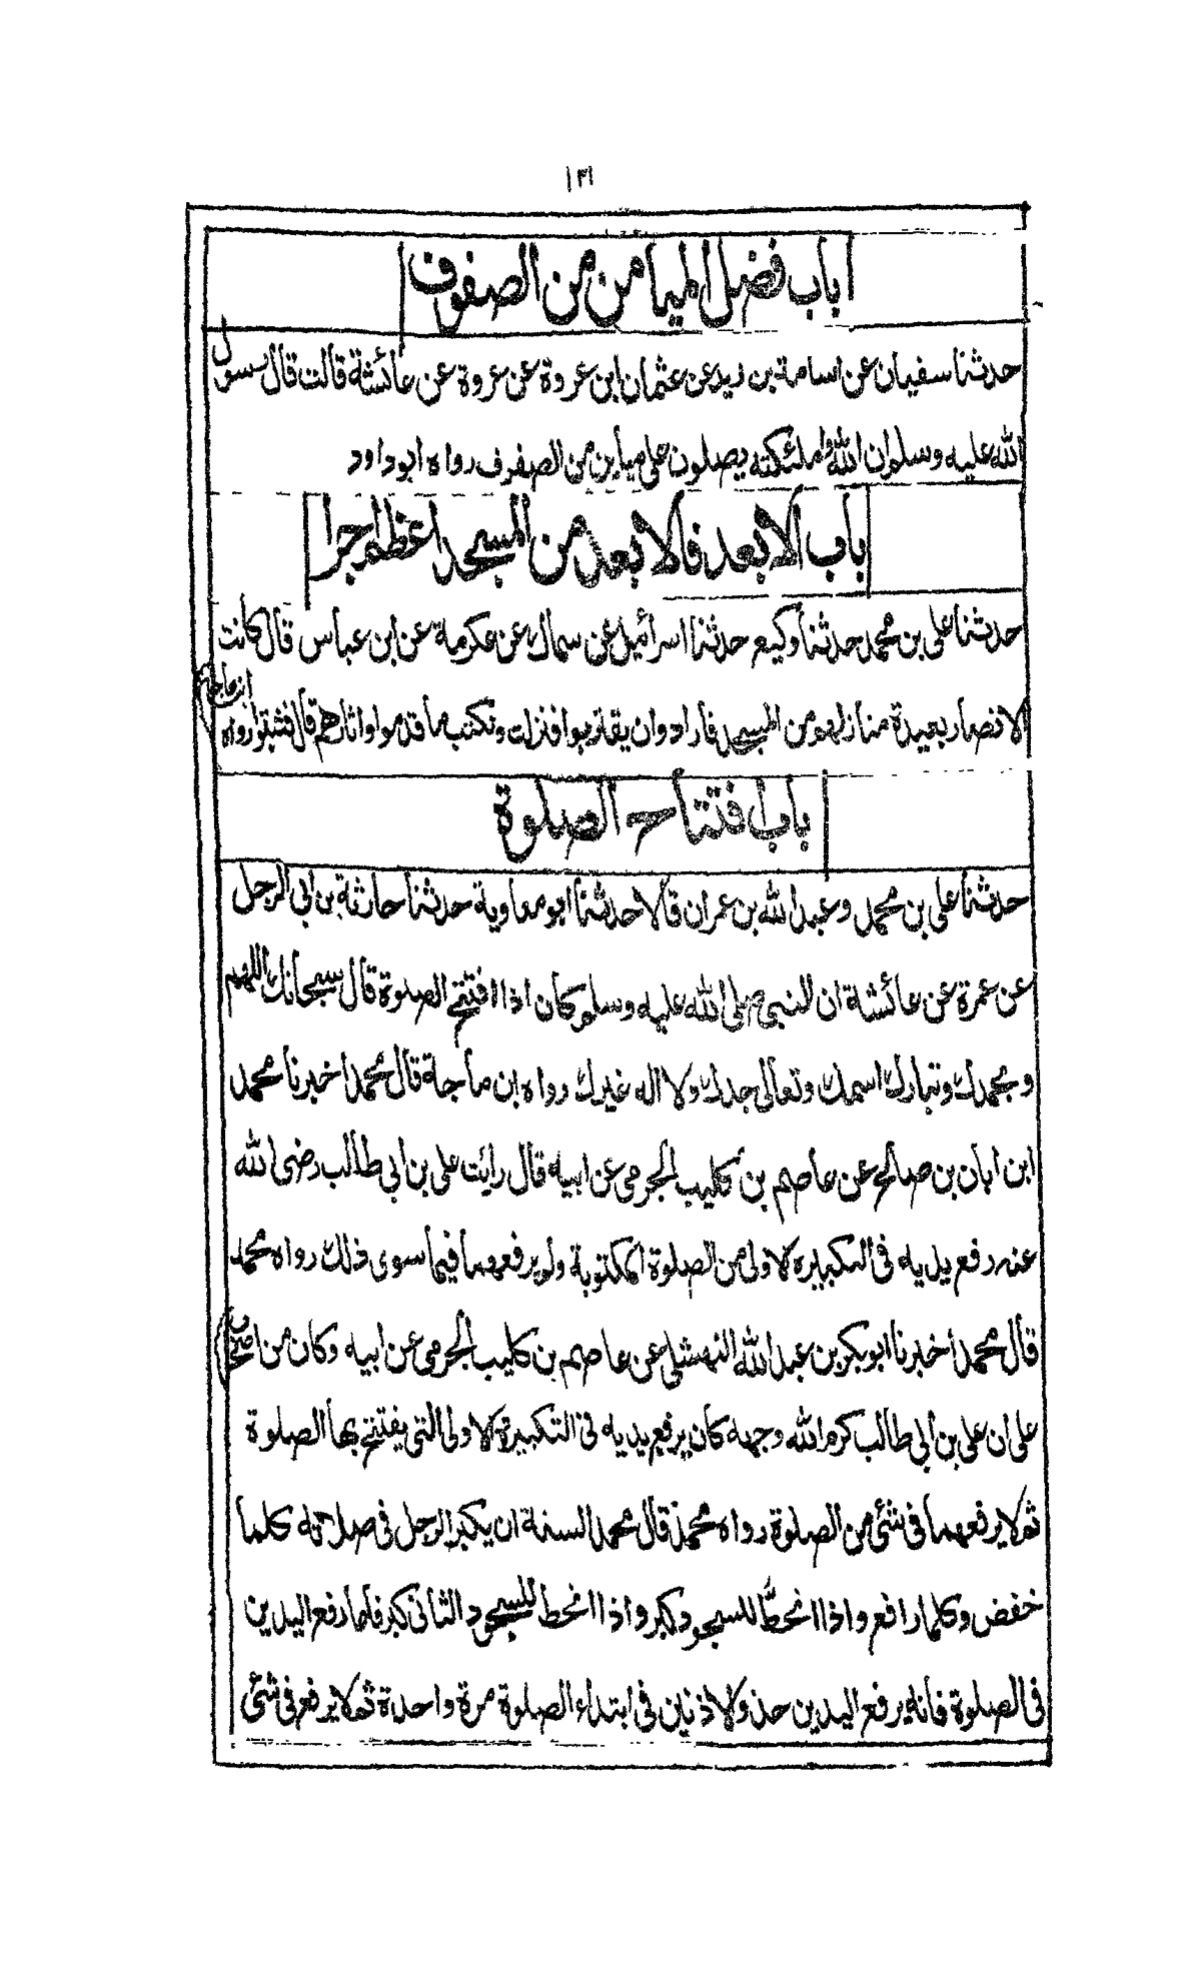 ۱۳۱
باب فضل الميامن من الصفوف
حدثنا سفيان عن اسامة بن زيد عن عثمان ابن عروة عن عروة عن عائشة قالت قال رسول
الله عليه وسلم ان الله وملئكته يصلون على ميامن من الصفوف رواه ابوداود
باب الابعد فالابعد من المسجد اعظم اجرا
حدثنا على بن محمد حدثنا وكيع حدثنا اسرائيل عن سماك عن عكرمة عن ابن عباس قال كانت
الانصار بعيدة منازلهم من المسجد فارادوا ان يقتربوا فنزلت ونكتب ما قدموا واثارهم قال فثبتوا رواه
ابن ماجة
باب افتتاح الصلوة
حدثنا على بن محمد وعبد الله بن عمران قالا حدثنا ابو معاوية حدثنا حارثة بن ابى الرجل
عن عمرة عن عائشة ان النبى صلى الله عليه وسلم كان اذا افتتح الصلوة قال سبحانك اللهم
وبحمدك وتبارك اسمك وتعالى جدك ولا اله غيرك رواه ابن ماجة قال محمد اخبرنا محمد
ابن ابان بن صالح عن عاصم بن كليب الجرمى عن ابيه قال رايت على بن ابى طالب رضى الله
عنه رفع يديه فى التكبيرة الاولى من الصلوة المكتوبة ولم يرفعهما فيما سوى ذلك رواه محمد
قال محمد اخبرنا ابوبكر بن عبد الله النهشلى عن عاصم بن كليب الجرمى عن ابيه وكان من اصحاب
على ان على بن ابى طالب كرم الله وجهه كان يرفع يديه فى التكبيرة الاولى التى يفتتح بها الصلوة
ثم لا يرفعهما فى شئى من الصلوة رواه محمد قال محمد السنة ان يكبر الرجل فى صلاته كلما
خفض وكلما رافع واذا انحط للسجود كبر واذا انحط للسجود الثانى كبر فاما رفع اليدين
فى الصلوة فانه يرفع اليدين حذو الاذنين فى ابتداء الصلوة مرة واحدة ثم لا يرفع فى شئى